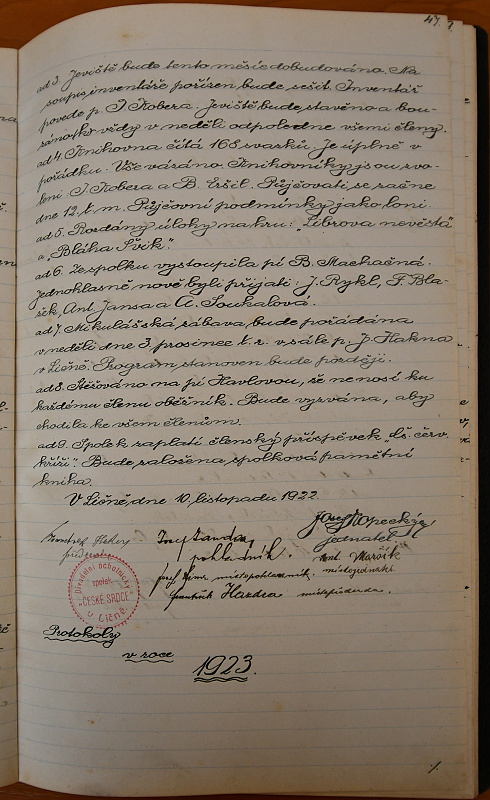 47.
ad 3. Jeviště bude tento měsíc dobudováno. Na
soupis inventáře pořízen bude sešit. Inventář
povede p. J. Kobera. Jeviště bude stavěno a bou-
ráno vždy v neděli odpoledne všemi členy.
ad 4. Knihovna čítá 168 svazků. Je úplně v
pořádku. Vše vázáno. Knihovníky jsou zvo-
leni J. Kobera a B. Eršil. Půjčovati se začne
dne 12. t. m. Půjčovní podmínky jako loni.
ad 5. Rozdány úlohy na hru: "Líbrova nevěsta"
a "Bláha Švik".
ad 6. Ze spolku vystoupila pí B. Machačná.
Jednohlasně nově byli přijati: J. Rykl, F. Bla-
žek, Ant. Jansa a A. Soukalová.
ad 7. Mikulášská zábava bude pořádána
v neděli dne 3. prosince t. r. v sále p. J. Hakna
v Líšně. Program stanoven bude později.
ad 8. Stěžováno na pí Havlovou, že nenosí ku
každému členu oběžník. Bude vyzvána, aby
chodila ke všem členům.
ad 9. Spolek zaplatí členský příspěvek "Čs. červ.
kříži". Bude založena spolková pamětní
kniha.
V Líšně, dne 10. listopadu 1922.
Josef Kopecký
jednatel
Josef Janda
pokladník.
Ant. Marčík
místojednatel
místopokladník.
František Hazdra místopředseda.
Divadelní ochotnický
spolek
"ČESKÉ SRDCE"
v Líšně.
Protokoly
v roce
1923.
%